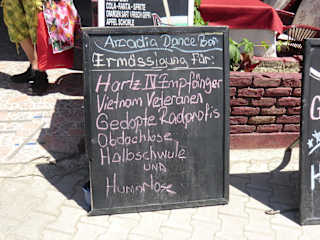 COLA-FANTA-SPRITE
ORANGENSAFT FRISCH GEPR
APFEL SCHORLE
Arcadia Dance Bar
Ermässigung für:
Hartz IV Empfänger
Vietnam Veteranen
Gedopte Radprofis
Obdachlose
Halbschwule
UND
Humorlose